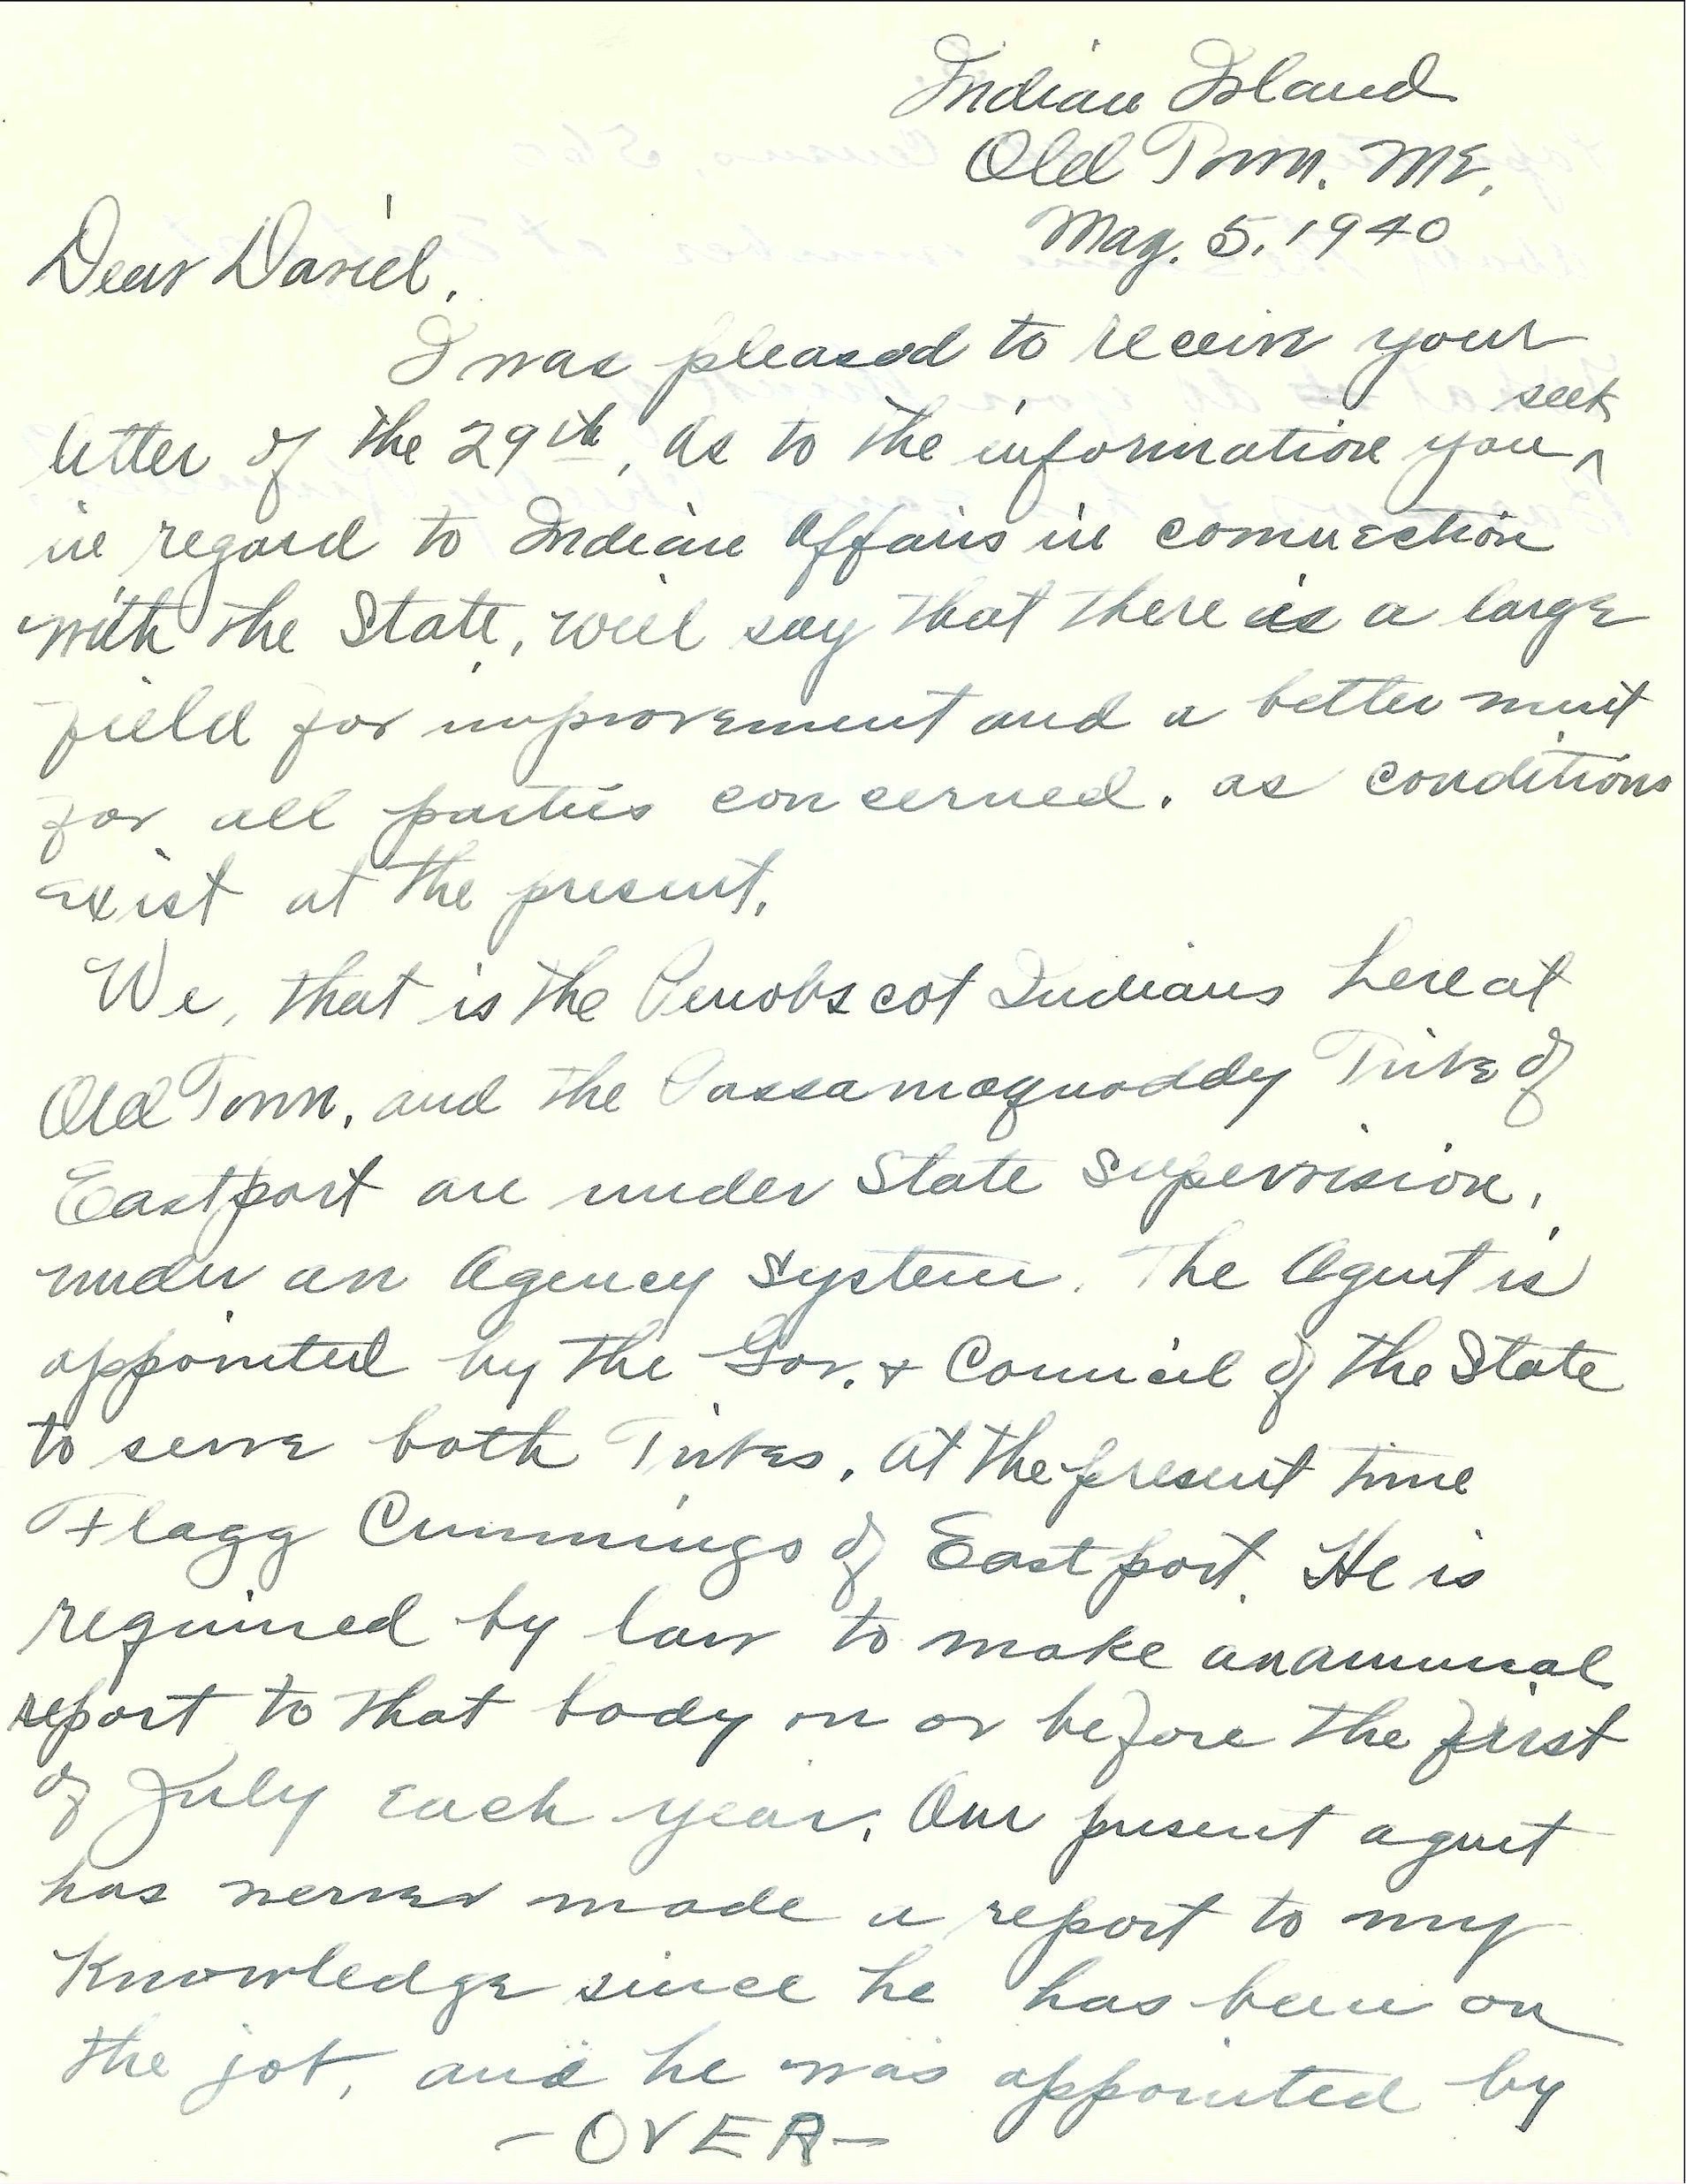 Indian Island
Old Town. ME.
May. 5. 1940
Dear Daniel.
I was pleased to receive your
letter of the 29th, as to the information you ^ seek
in regard to Indian Affairs in connection
with the State, will say that there is a large
field for improvement and a better merit
for all parties concerned. as conditions
exist at the present.
We, that is the Penobscot Indians here at
Old Town, and the Passamaquoddy Tribe of
Eastport are under State Supervision,
under an Agency System. The Agent is
appointed by the Gov. & Council of the State
to serve both Tribes. At the present time
Flagg Cummings of Eastport. He is
required by law to make an annual
report to that body on or before the first
of July each year. Our present agent
has never made a report to my
knowledge since he has been on
the job, and he was appointed by
- OVER -